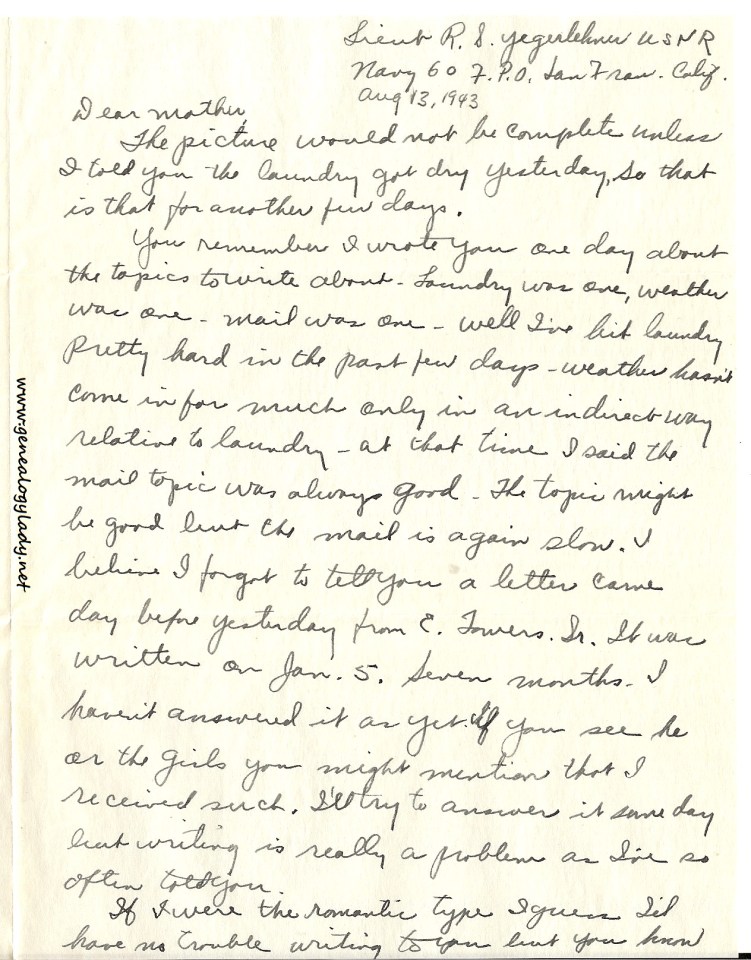 Lieut R. S. Yegerlehner USNR
Navy 60 F.P.O. San Fran. Calif.
Aug 13, 1943
Dear mother,
The picture would not be complete unless
I told you the laundry got dry yesterday, so that
is that for another few days.
You remember I wrote you one day about
the topics to write about - Laundry was one, weather
was one - mail was one - well I've hit laundry
pretty hard in the past few days - weather hasn't
come in for much only in an indirect way
relative to laundry - at that time I said the
mail topic was always good - The topic might
be good but the mail is again slow. I
believe I forgot to tell you a letter came
day before yesterday from E. Towers. Sr. It was
written on Jan. 5. Seven months. I
haven't answered it as yet. If you see he
or the girls you might mention that I
received such. I'll try to answer it some day
but writing is really a problem as I've so
often told you.
If I were the romantic type I guess I'd
have no trouble writing to you but you know
www.genealogylady.net